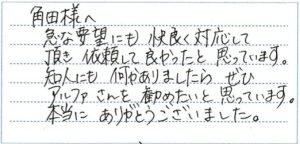 角田様へ
急な要望にも 快良く対応して
頂き 依頼して良かったと思っています。
知人にも 何かありましたら ぜひ
アルファさんを勧めたいと思っています。
本当に ありがとうございました。